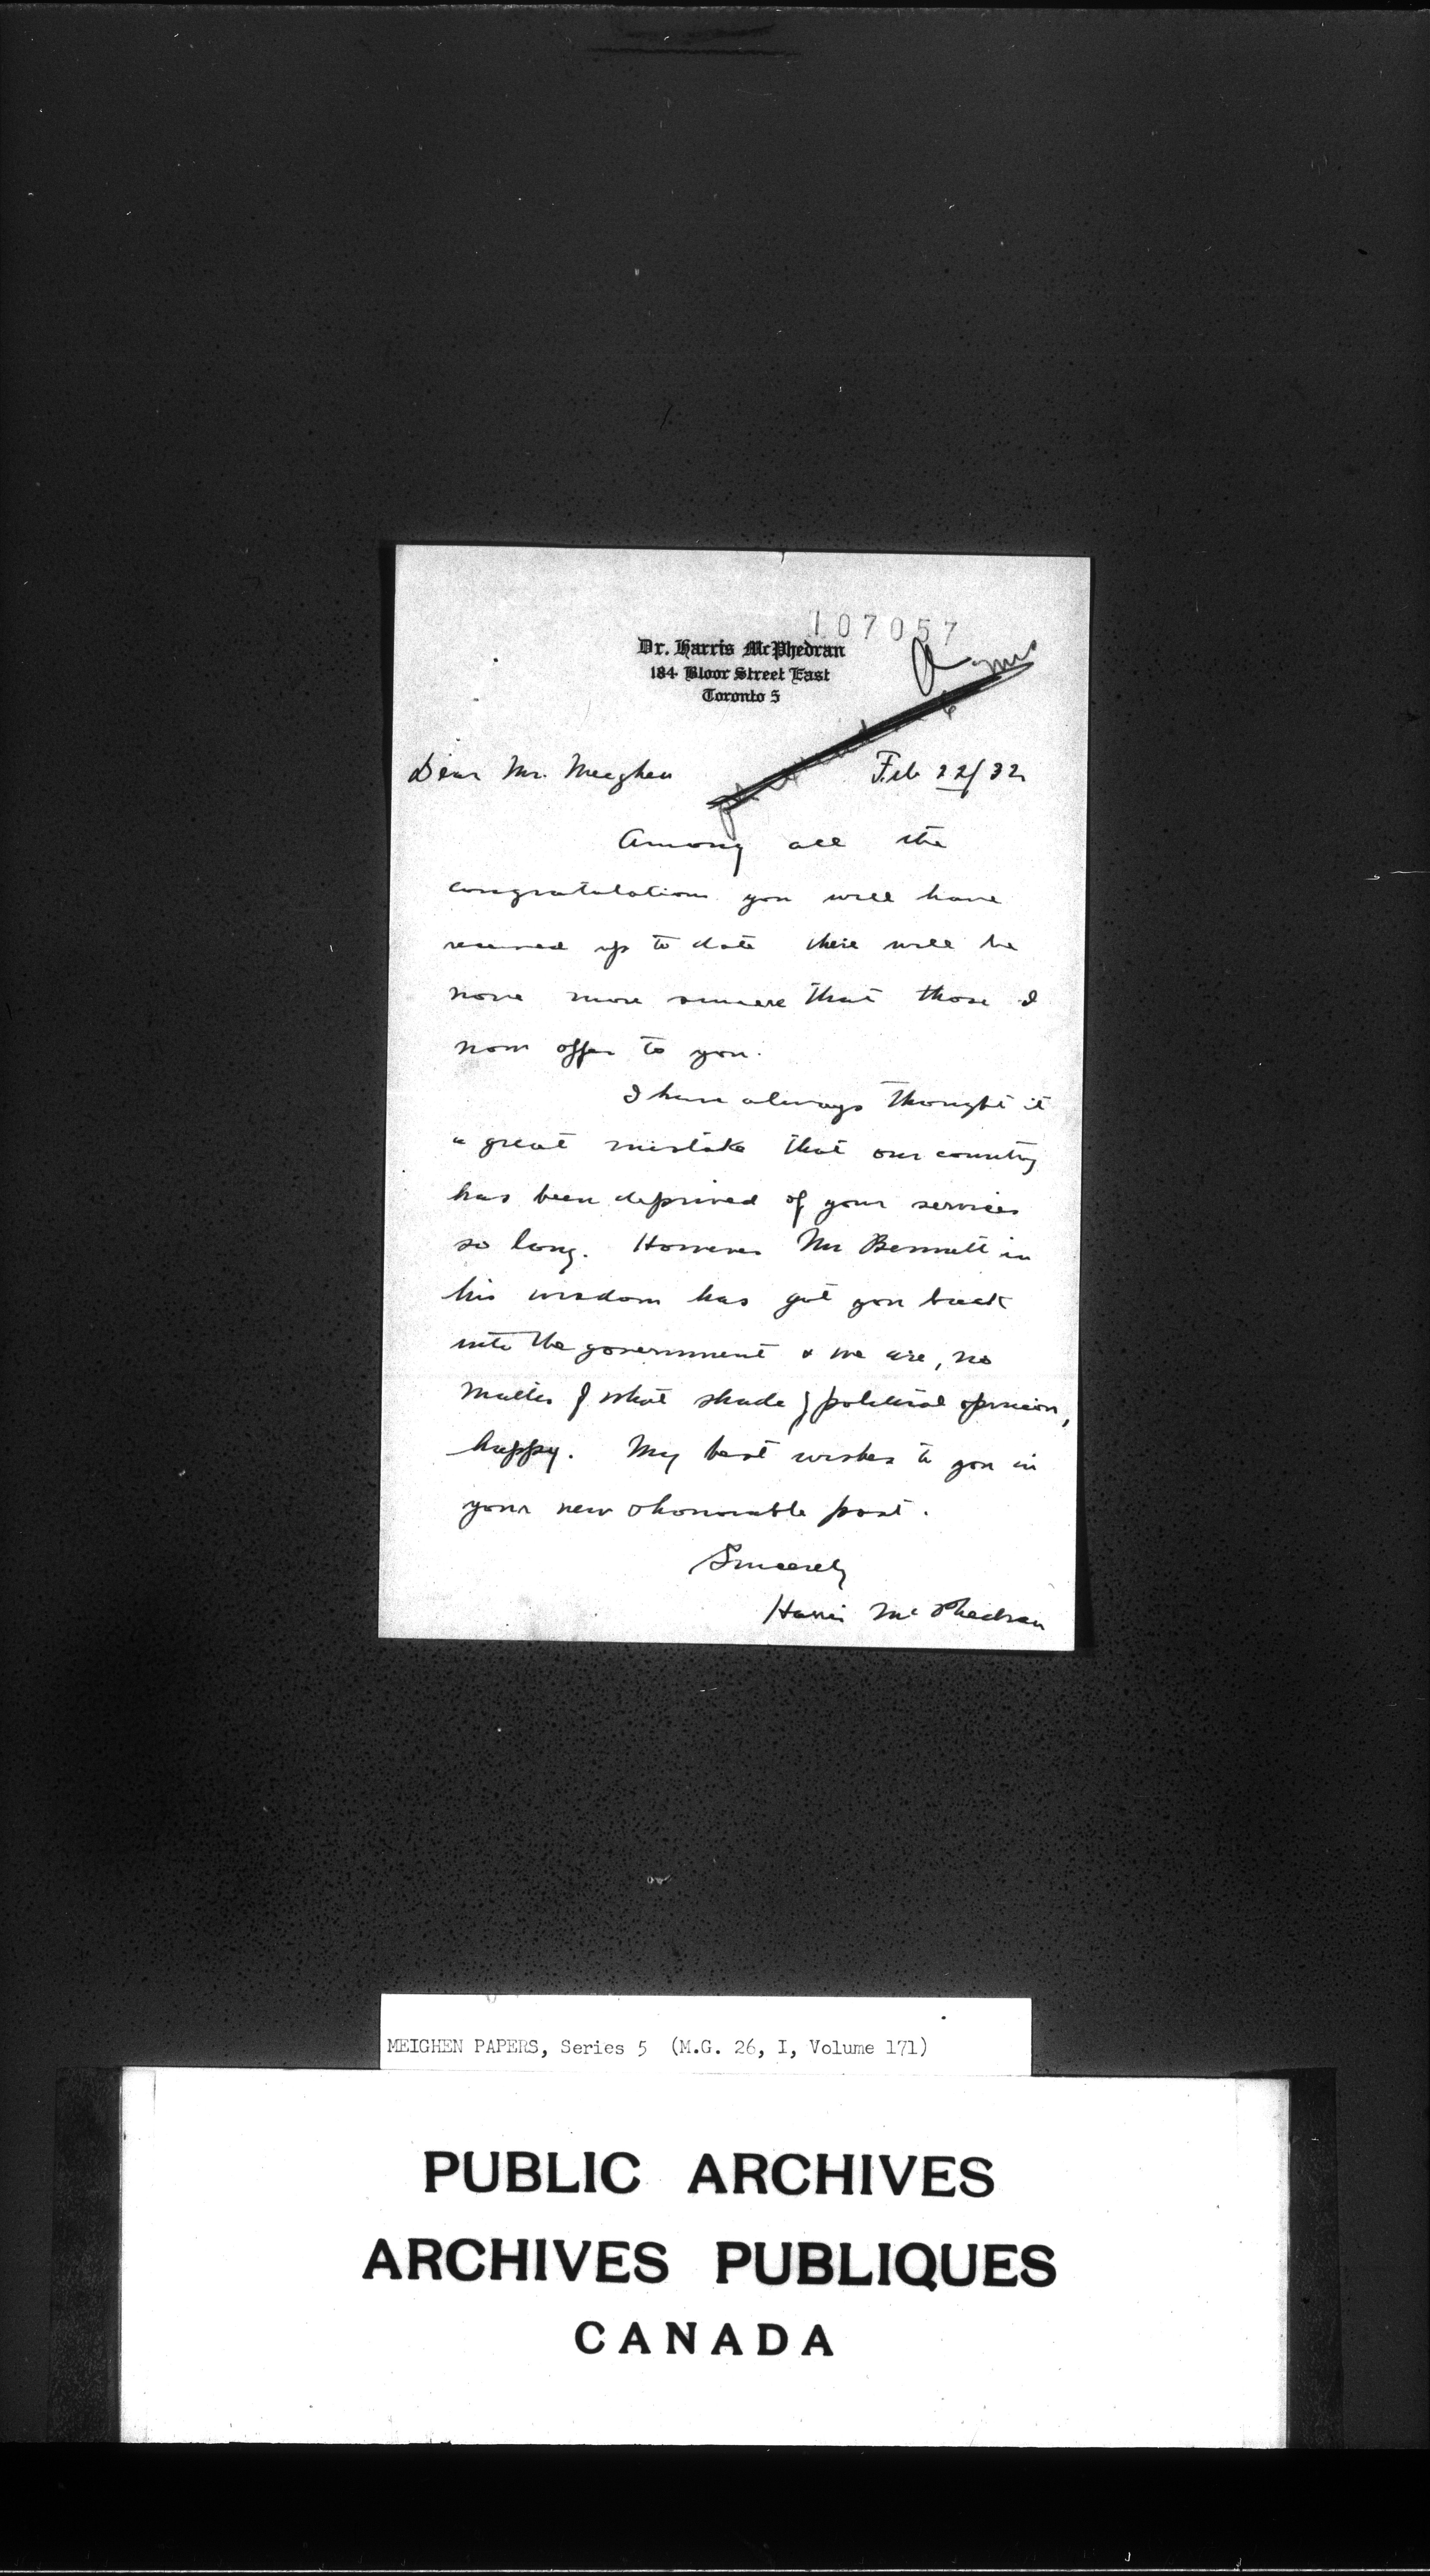 107057
Dr. Harris McPhedran
184 Bloor Street East
Toronto 5
Dear Mr. Meighen
Feb 22/32
Among all the
congratulations you will have
received up to date there will be
none more sincere that those I
now offer to you.
I have always thought it
a great mistake that our country
has been deprived of your services
so long. However Mr Bennett in
his wisdom has got you back
into the government & we are, no
matter of what shade of political opinion,
happy. My best wishes to you in
your new & honourable post.
Sincerely
Harris McPhedran
MEIGHEN PAPERS, Series 5 (M.G. 26, I, Volume 171)
PUBLIC ARCHIVES
ARCHIVES PUBLIQUES
CANADA